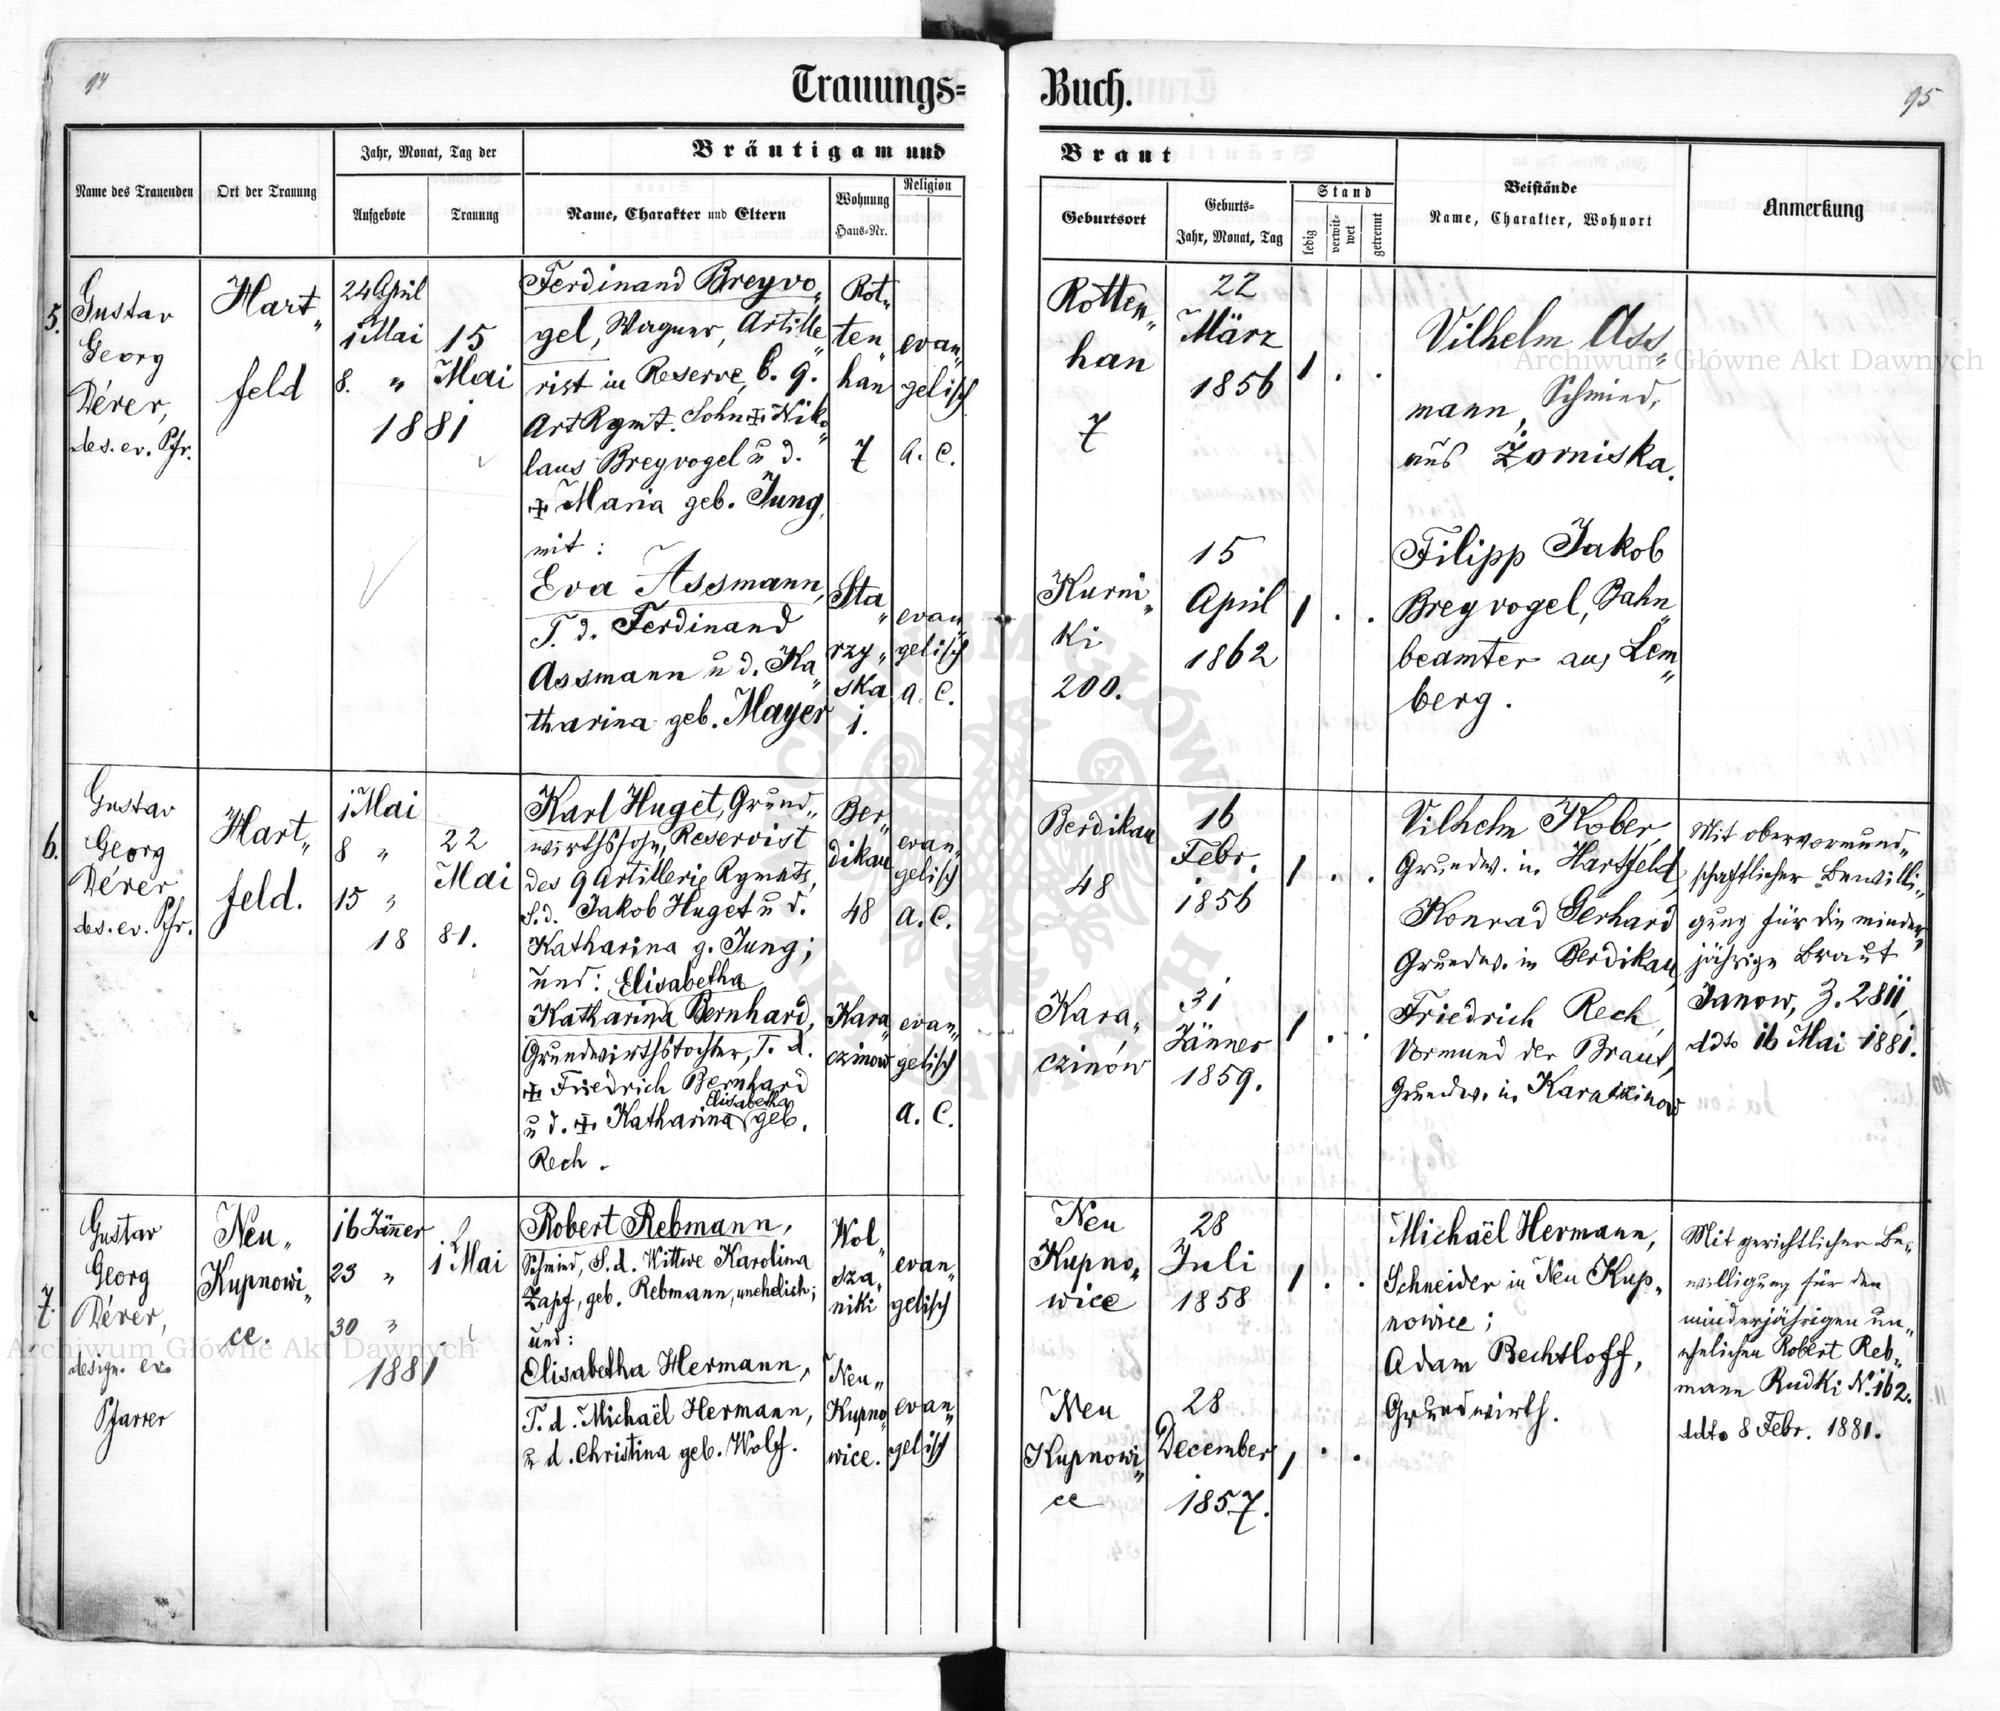 94
Trauungs=
Buch.
95
Name des Trauenden
Ort der Trauung
Jahr, Monat, Tag der
Aufgebote
Trauung
Bräutigam und
Name, Charakter und Eltern
Wohnung
Haus=Nr.
Religion
Braut
Geburtsort
Geburts=
Jahr, Monat, Tag
Stand
ledig
verwit=
wet
getrennt
Beistände
Name, Charakter, Wohnort
Anmerkung
5.
Gustav
Georg
Dérer,
des. ev. Pfr.
Hart„
feld
24 April
1 Mai
8. „
15
Mai
1881
Ferdinand Breyvo„
gel, Wagner, Artille„
rist in Reserve, b. 9.
Art Rgmt. Sohn ✠ Niko„
laus Breyvogel u. d.
✠ Maria geb. Jung,
mit :
Eva Assmann,
T. d. Ferdinand
Assmann u. d. Ka„
tharina geb. Mayer
Rot„
ten„
han
7
evan„
gelisch
A. C.
Sta„
rzy„
ska
1.
evan„
gelisch
A. C.
Rotten„
han
7
22
März
1856
1 . .
Kurni„
ki
200.
15
April
1862
1 . .
Vilhelm Ass„
mann, Schmied,
aus Żorniska.
Filipp Jakob
Breyvogel, Bahn„
beamter aus Lem„
berg.
6.
Gustav
Georg
Dérer
des. ev. Pfr.
Hart„
feld.
1 Mai
8 „
15 „
22
Mai
1881.
Karl Huget, Grund„
wirthssohn, Reservist
des 9 Artillerie Rgmnts,
S. d. Jakob Huget u. d.
Katharina g. Jung;
und: Elisabetha
Katharina Bernhard,
Grundwirthstochter, T. d.
✠ Friedrich Bernhard
Elisabetha
u. d. ✠ Katharina geb.
Rech.
Ber„
dikau
48
evan„
gelisch
A. C.
Kara„
czinow
evan„
gelisch
A. C.
Berdikau
48
16
Febr.
1856
1 . .
Kara„
czinów
31
Jänner
1859.
1 . .
Vilhelm Kober,
Grundw. in Hartfeld
Konrad Gerhard
Grundw. in Berdikau,
Friedrich Rech,
Vormund der Braut,
Grundw. in Karatkinow
Mit obervormund„
schaftlicher Bewilli„
gung für die minder„
jährige Braut
Janow, Z. 2811,
ddto 16 Mai 1881.
7.
Gustav
Georg
Dérer,
design. ev.
Pfarrer
Neu„
Kupnowi„
ce.
16 Jänner
23 „
30 „
1 Mai
1881
Robert Rebmann,
Schmied, S. d. Wittwe Karolina
Zapf, geb. Rebmann, unehelich;
und:
Elisabetha Hermann,
T. d. Michaël Hermann,
u. d. Christina geb. Wolf.
Wol„
sza„
niki
evan„
gelisch
Neu„
Kupno„
wice.
evan„
gelisch
Neu
Kupno„
wice
28
Juli
1858
1 . .
Neu
Kupnowi„
ce
28
December
1857.
1 . .
Michaël Hermann,
Schneider in Neu Kup„
nowice;
Adam Bechtloff,
Grundwirth.
Mit gerichtlicher Be„
willigung für den
minderjährigen un„
ehelichen Robert Reb„
mann Rudki N. 162.
ddto 8 Febr. 1881.
Archiwum Główne Akt Dawnych
Archiwum Główne Akt Dawnych
ARCHIWUM GŁÓWNE AKT DAWNYCH